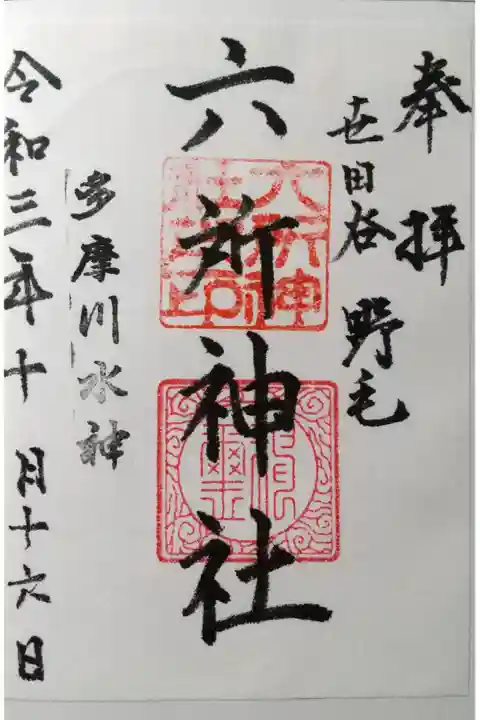 奉拝
世田谷 野毛
六所神社
六所神社之印
多摩川水神
令和三年十月十六日